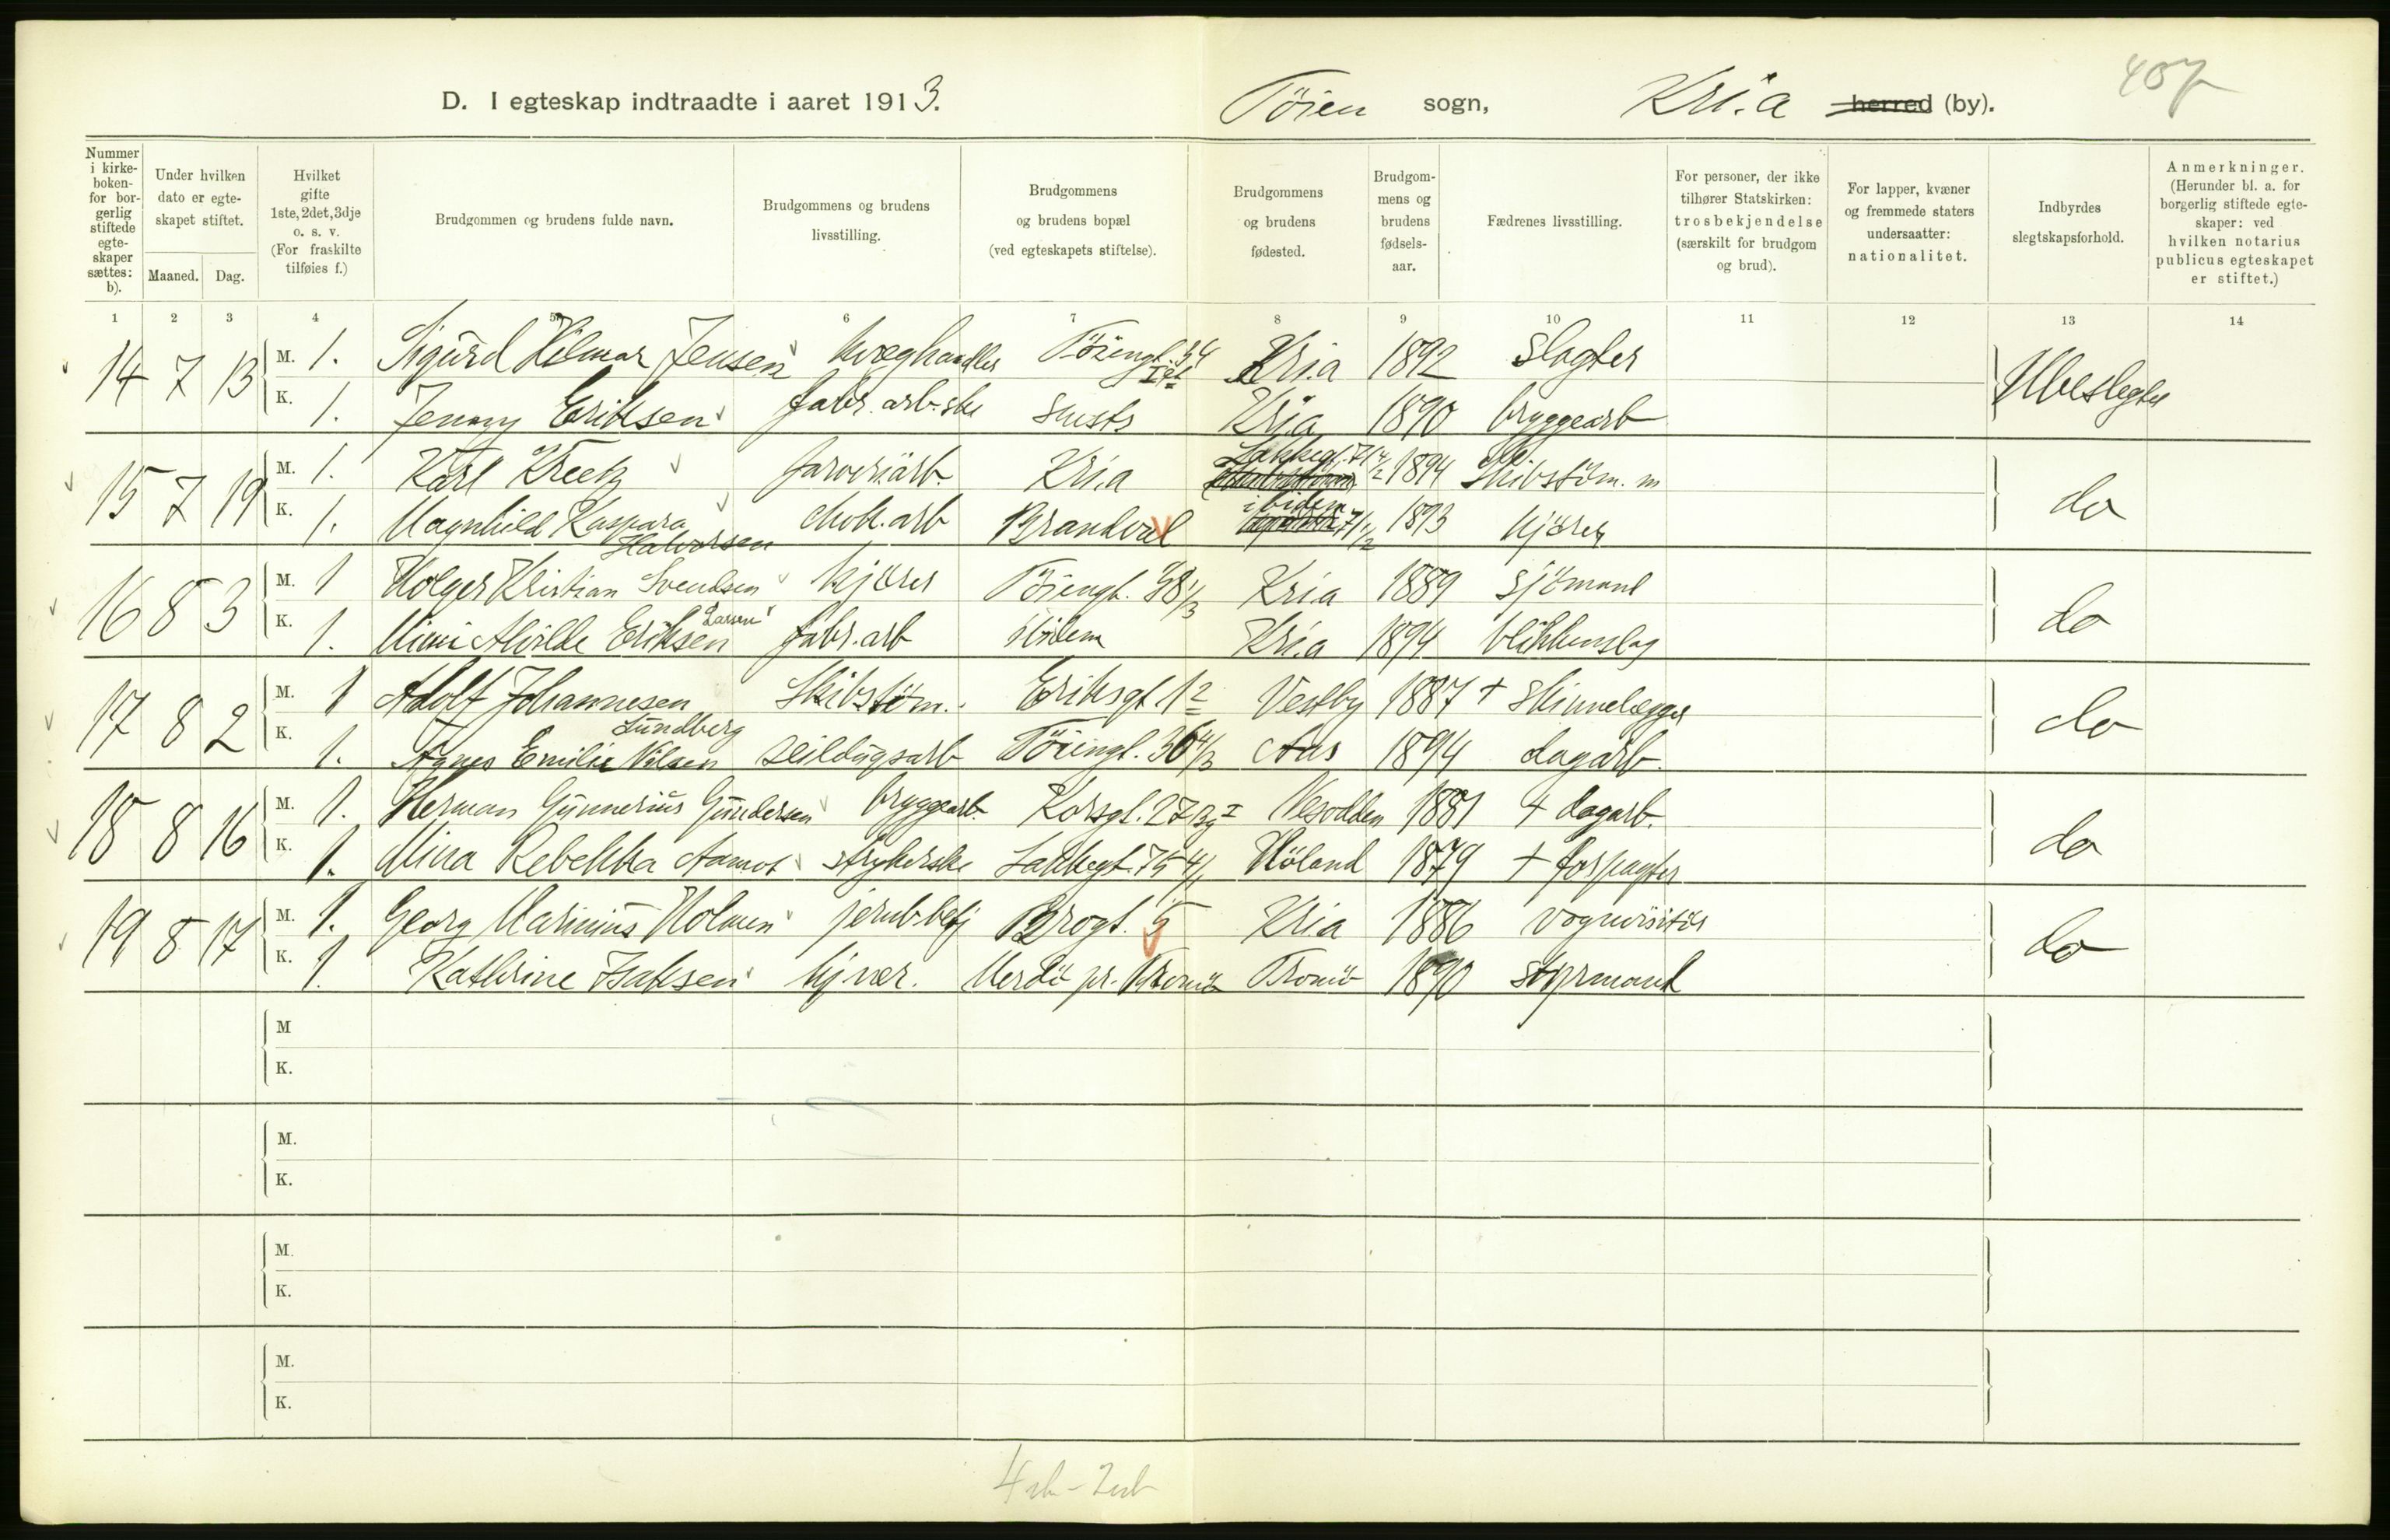 D. I egteskap indtraadte i aaret 1913. Töien sogn, Kria herred (by). 407
Nummer i kirkeboken- for borgerlig stiftede egteskaper sættes: b).
Under hvilken dato er egteskapet stiftet.
Maaned. Dag.
Hvilket gifte 1ste, 2det, 3dje o. s. v. (For fraskilte tilføies f.)
Brudgommen og brudens fulde navn.
Brudgommens og brudens livsstilling.
Brudgommens og brudens bopæl (ved egteskapets stiftelse).
Brudgommens og brudens fødested.
Brudgommens og brudens fødselsaar.
Fædrenes livsstilling.
For personer, der ikke tilhører Statskirken: trosbekjendelse (særskilt for brudgom og brud).
For lapper, kvæner og fremmede staters undersaatter: nationalitet.
Indbyrdes slegtskapsforhold.
Anmerkninger. (Herunder bl. a. for borgerlig stiftede egteskaper: ved hvilken notarius publicus egteskapet er stiftet.)
1 2 3 4 5 6 7 8 9 10 11 12 13 14
14 7 13 M. 1. Sigurd Hilmar Jensen kvæghandler Töiengt. 34 Kria 1892 slagter Ubeslegtet
K. 1. Jenny Eriksen fabr. arb.ske Kria 1890 bryggearb
15 7 19 M. 1. Karl farveriarb Kria Lakkegt. 71 1894 Skibstöm. m do
K. 1. Magnhild Kaspara Halvorsen chok. arb Brandval ibidem 1893 kjörer
16 8 3 M. 1 Holger Kristian Svendsen kjörer Töiengt. 38 1/3 Kria 1889 sjömand do
K. 1. Mimi Alvilde Eriksen Larsen fabr. arb ibidem Kria 1894 blikkenslag
17 8 2 M. 1 Adolf Johannesen Skibstöm. Eriksgt 12 Vestby 1887 + skinnelægger do
K. 1. Agnes Emilie Nilsen Lundberg seildugsarb Töiengt. 36 4/3 Aas 1894 dagarb.
18 8 16 M. 1. Herman Gunnerius Gundersen bryggearb. Korsgt. 27 Nesodden 1881 + dagarb. do
K. 1. Mina Rebekka Aamot strykerske Lakkegt. 75 4/1 Höland 1879 + forpagter
19 8 17 M. 1. Georg Marinius Holmen jernb.betj Brogt. 5 Kria 1886 vognvisitör do
K. 1. Kathrine Isaksen hj.vær. Merdö pr. Tromö Tromö 1890 styrmand
M
K.
M.
K.
M.
K.
M.
K.